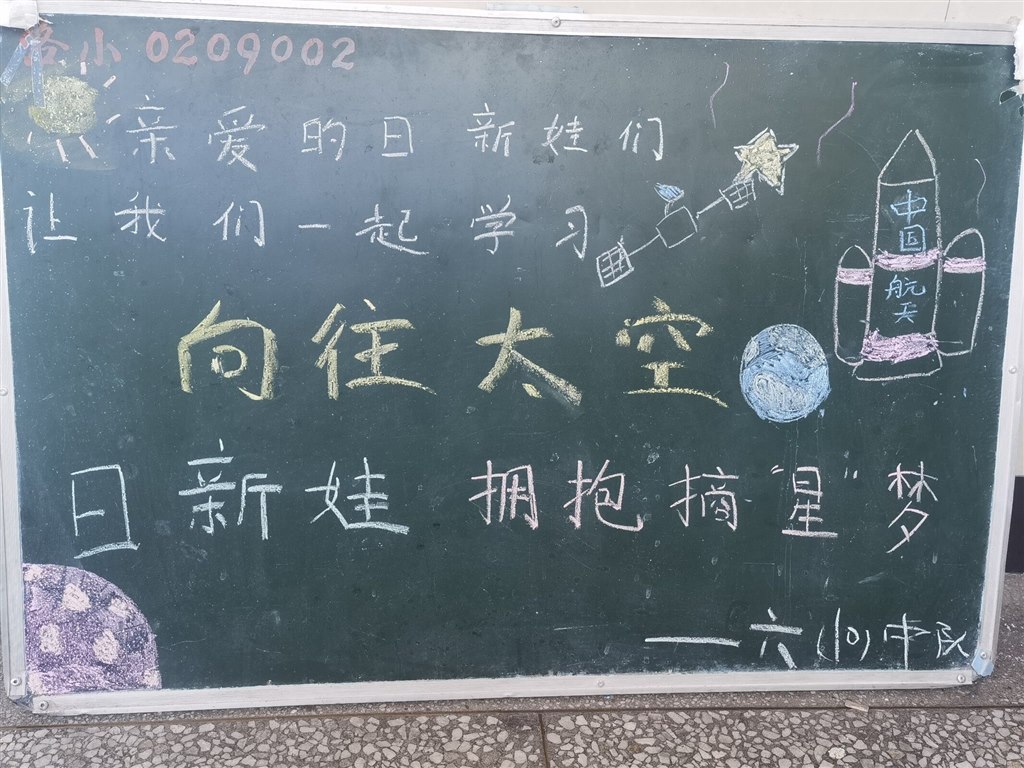 洛小 0209002
亲爱的日新娃们
让我们一起学习
向往太空
中国航天
日新娃 拥抱摘"星"梦
——六(10)中队